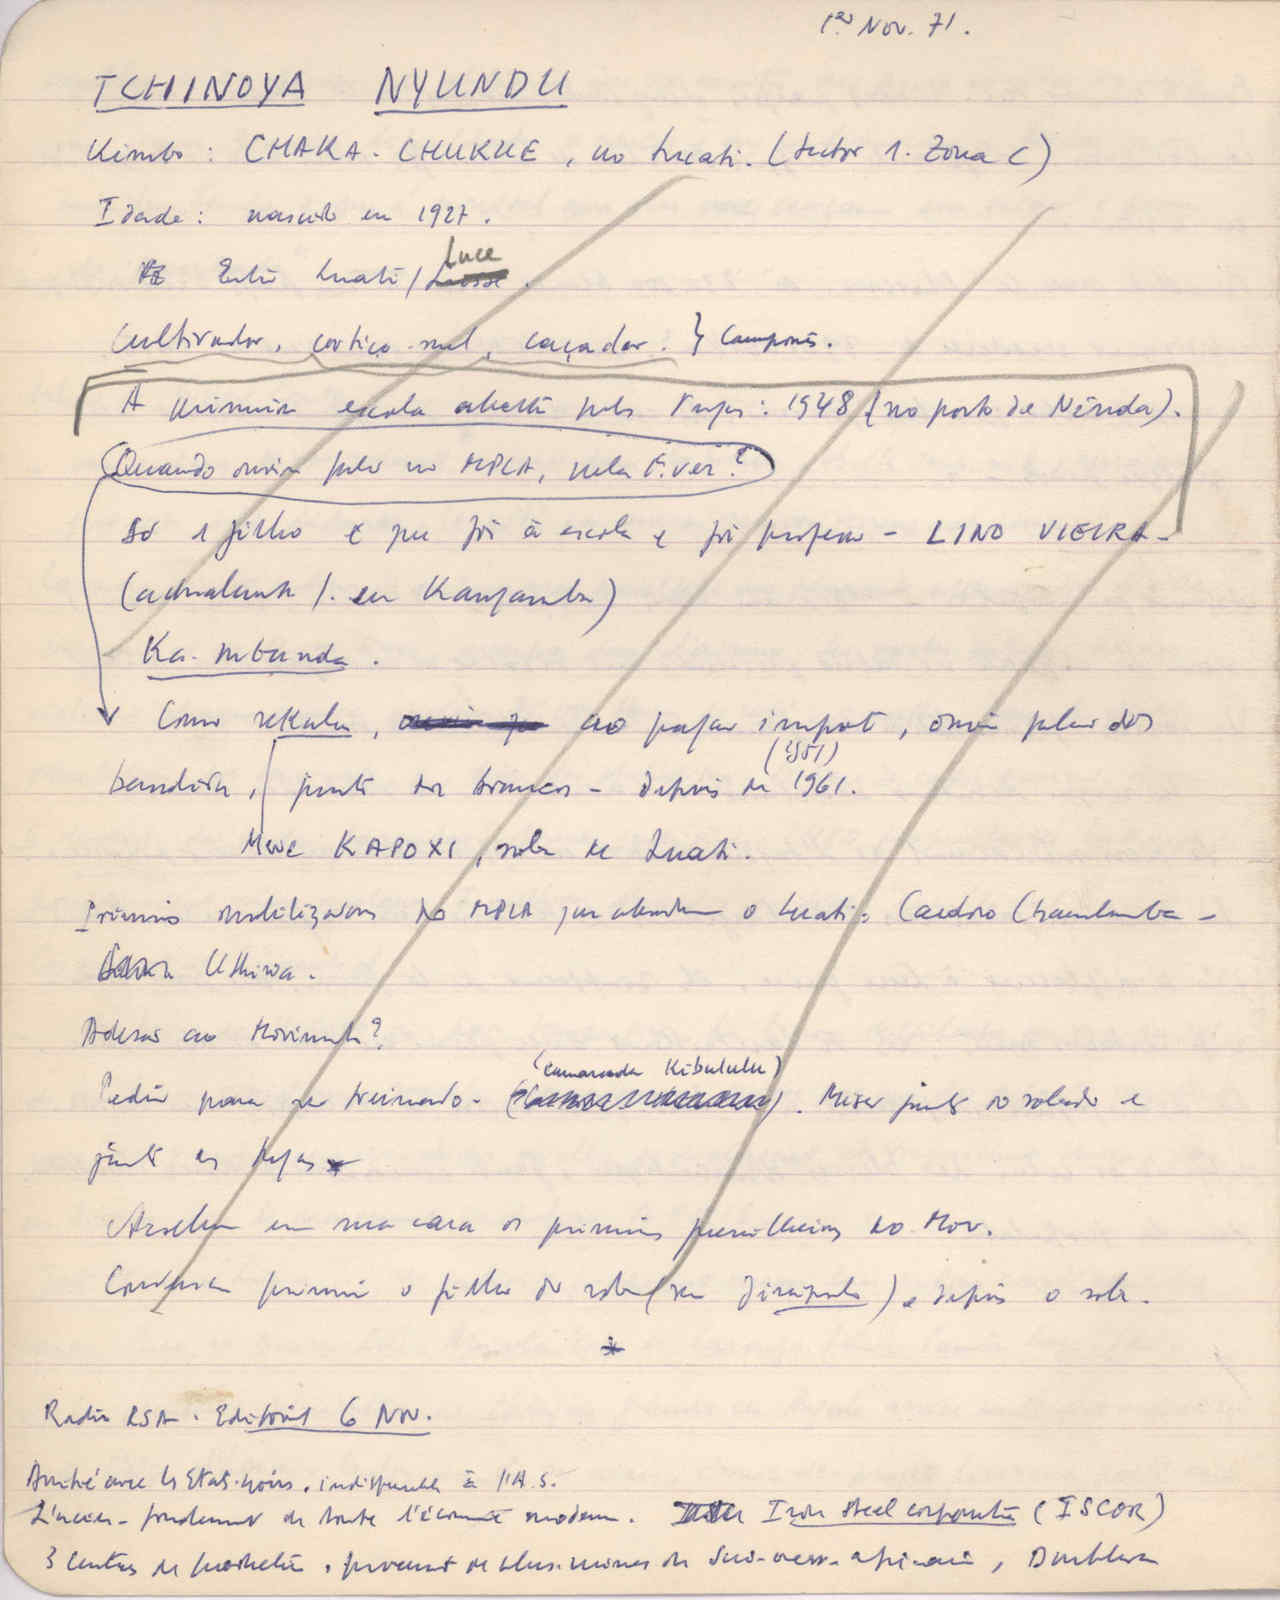 1º Nov. 71.
TCHINOYA NYUNDU
Kimbo: CHAKA-CHUKUE, no Luati. (Sector 1. Zona C)
Idade: nascido em 1927.
Entre Luati / Luce
Cultivador, cortiço-mel, caçador. } Camponês.
A primeira escola aberta pelos Tugas: 1948 (no posto de Ninda).
Quando ouviu falar no MPLA, pela 1ª vez?
Só 1 filho é que foi à escola e foi professor - LINO VIEIRA -
(actualmente em Kangamba)
Ka-mbunda.
Como sekulu, ao pagar imposto, ouviu falar dos
(1951)
bandidos, junto dos brancos - depois de 1961.
Mwe KAPOXI, soba de Luati.
Primeiros mobilizadores do MPLA que abordaram o Luati: Cardoso Chamlumba -
Uthiwa.
Adesão ao Movimento?
(camarada Kibululu)
Pediu para ser treinado - . junto do soba e
junto
em sua casa os primeiros guerrilheiros do Mov.
primeiro o filho do soba (seu discípulo), e depois o soba.
*
Radio RSA. Editorial 6 Nov.
Amitié avec les Etats-Unis, indispensable à l'A.S.
L'acier - fondement de toute l'économie moderne. Iron steel corporation (ISCOR)
3 centres de production, provenant de mines du Sud-ouest-africain,